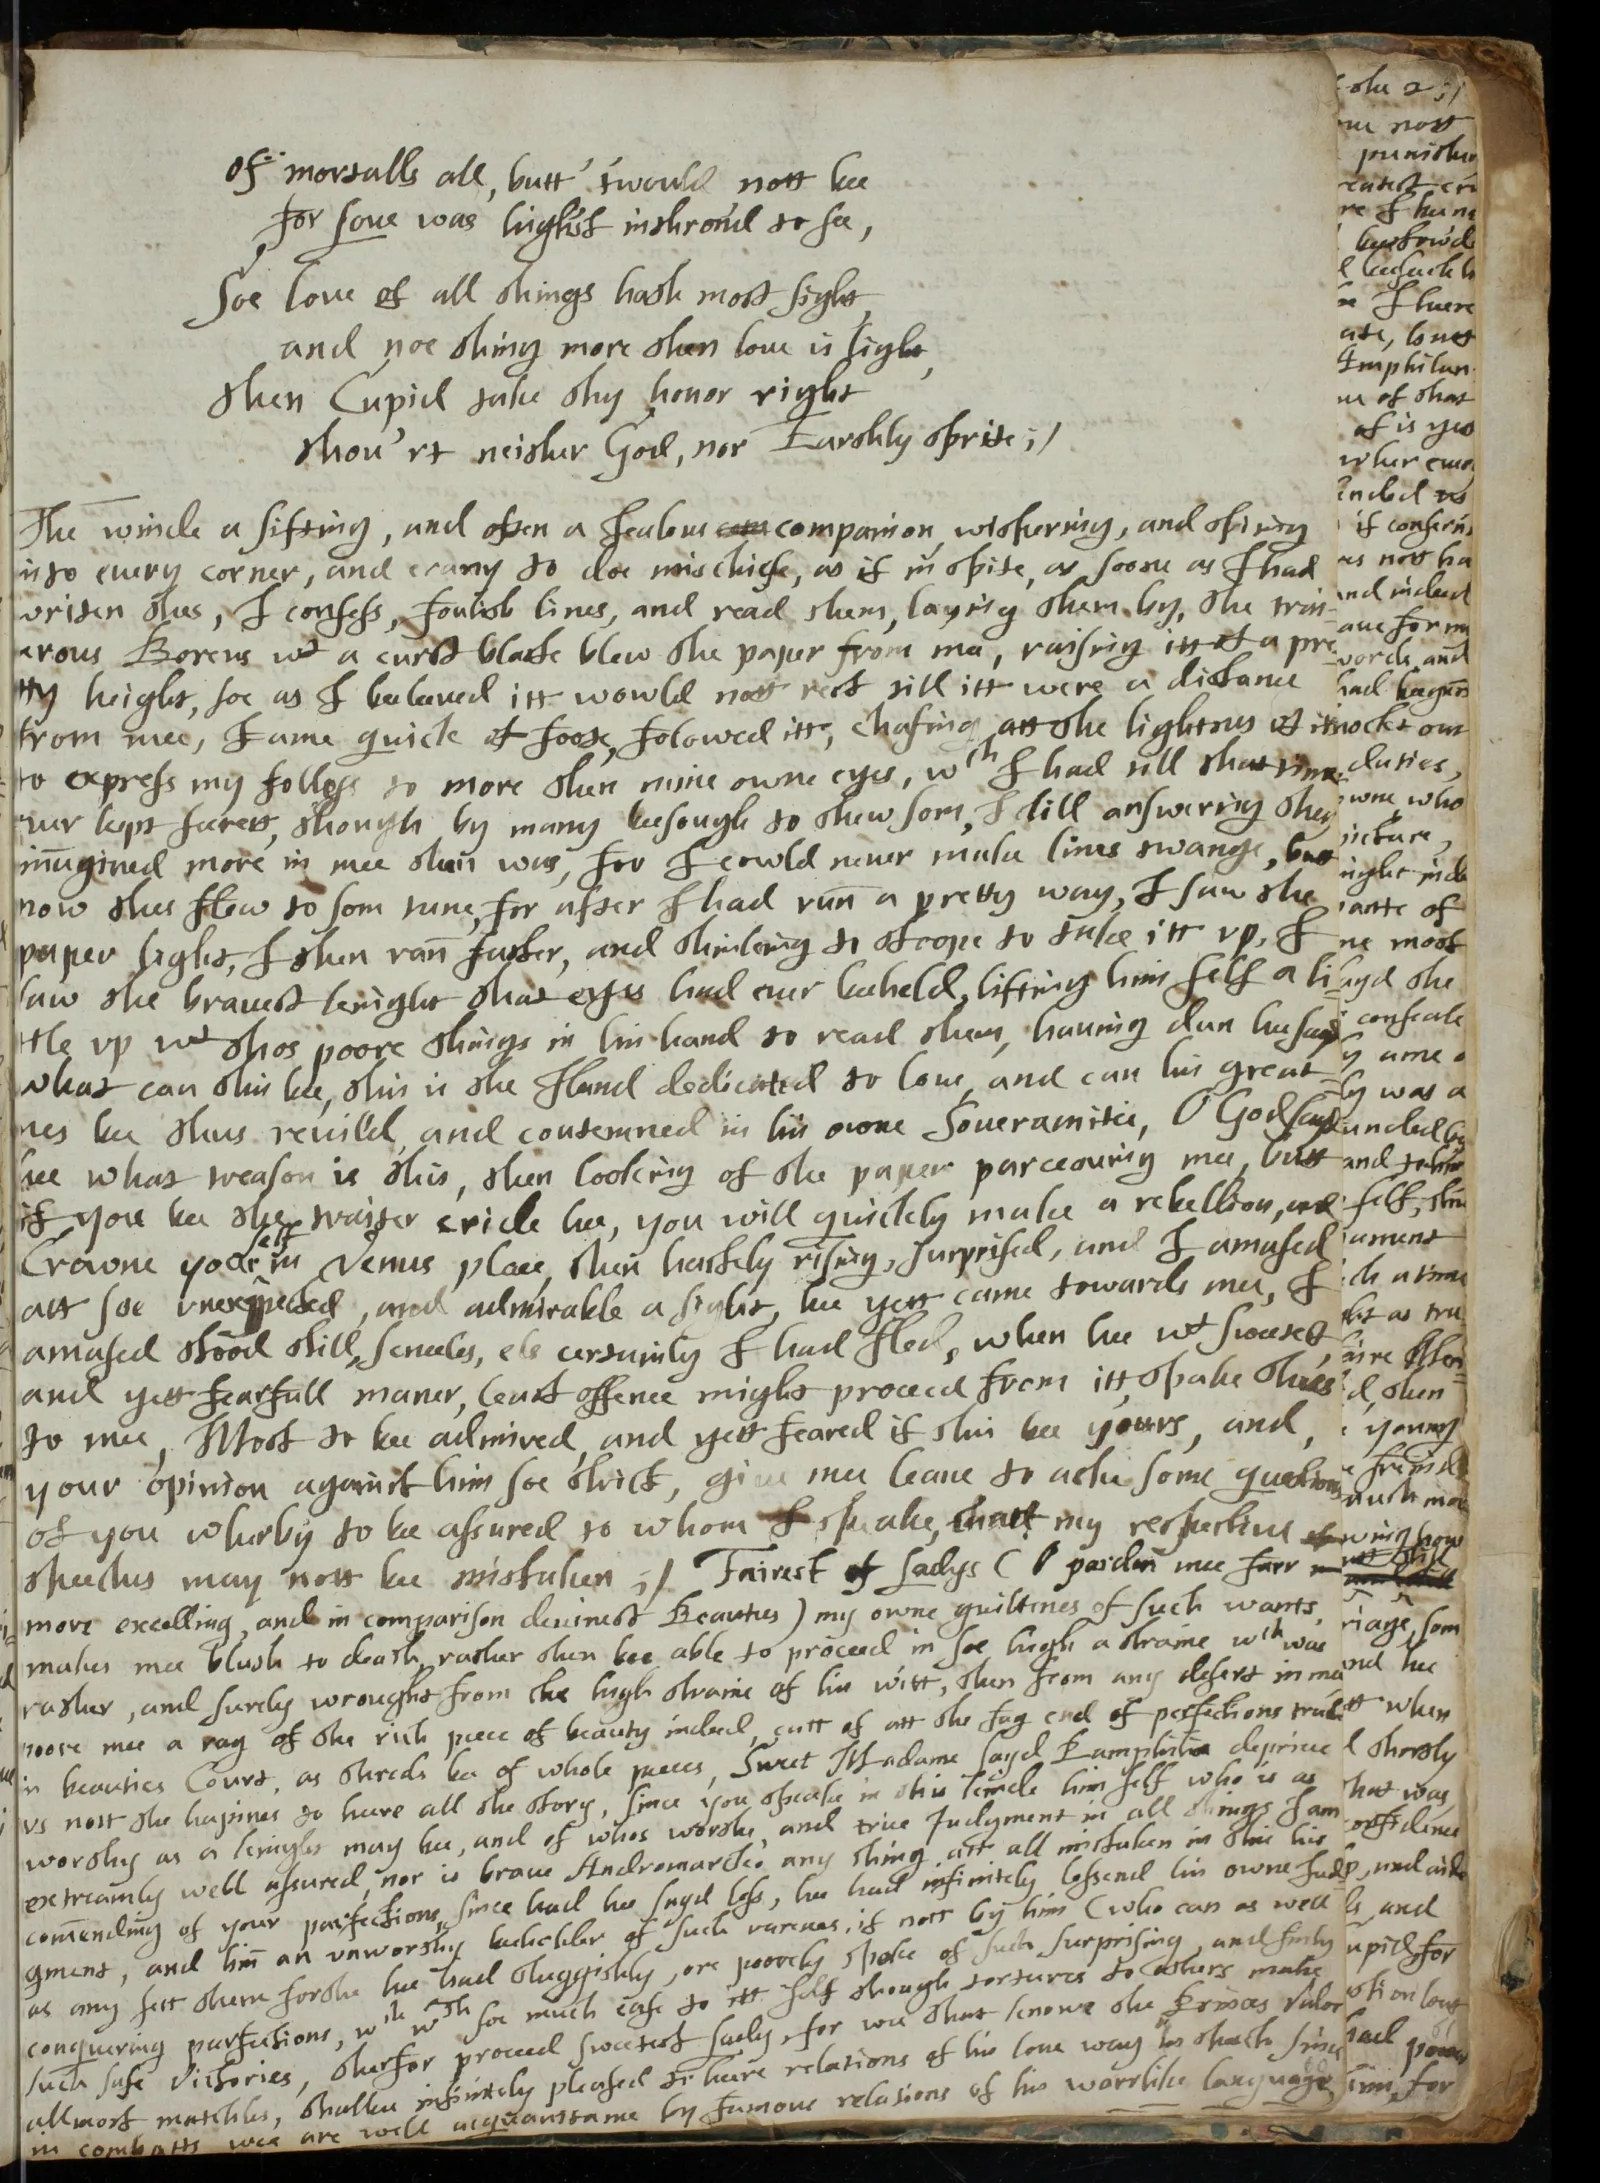 of mortalls all, butt 'twould nott bee
for Jove was highest inthron'd to see,
Soe love of all things hath most sight,
and noe thing more then love is light,
then Cupid take thy honor right
thou'rt neither God, nor Earthly sprite;/
The winde a sifting, and often a Jealous companion, wishering, and spiing
into every corner, and crany to doe mischiefe, as if in spite, as soone as I had
writen thes, I confess, foulish lines, and read them, laying them by, the trai-
erous Boreus wt a curst blaste blew the paper from mee, raising itt att a pre
tty height, soe as I beeleeved itt wowld nott rest till itt were a distance
from mee, I ame quick of foote, folowed itt, chafing att the lightnes of itt
to express my follyes to more then mine owne eyes, wch I had till that time
ever kept secrett, though by many beesought to shew som, I still answering they
imagined more in mee then was, for I cowld never make lines twange, butt
now thes flew to som tune, for after I had run a pretty way, I saw the
paper light, I then ran faster, and thinking to stoope to take itt up, I
saw the bravest knight that eyes had ever beeheld, lifting him self a li
ttle up wt thos poore things in his hand to read them, having dun hee sayd
what can this bee, this is the Iland dedicated to love, and can his great
nes bee thus revil'd, and contemned in his owne Soverainitie, O God sayd
hee what treason is this, then looking of the paper parceaving mee, butt
if you bee the traiter cride hee, you will quickly make a rebellion, and
Crowne your self in Venus place, then hastely rising, surprised, and I amased
att soe unexpected, and admirable a sight, hee yett came towards mee, I
amased stood still, senceles, els certainly I had fled, when hee wt sweetest,
and yett fearfull maner, least offence might proceed from itt, spake thus
to mee, Most to bee admired, and yett feared if this bee yours, and,
your opinion against him soe strict, give mee leave to aske some questions
of you wherby to bee assured to whom I speake, thatt my respective
speeches may nott bee mistaken;/ Fairest of Ladys ( O pardon mee farr
more excelling, and in comparison devinest Beauties) my owne guiltines of such wants,
makes mee blush to death, rather then bee able to proceed in soe high a straine wch was
rather, and surely wrought from the high straine of his witt, then from any desert in mee
poore mee a rag of the rich peece of beauty indeed, cutt of att the fag end of perfections trule
in beauties Court, as shreds bee of whole peeces, Sweet Madame sayd Pamphilia deprive
us nott the hapines to heere all the story, since you speake in this kinde him self who is as
worthy as a knight may bee, and of whos worthe, and true Judgment in all things I am
extreamly well assured, nor is brave Andromarcko any thing att all mistaken in this his
comending of your parfections, since had hee sayd less, hee had infinitely lessend his owne Jud
gment, and him an unworthy beeholder of such varenes, if nott by him (who can as well
as any sett them forthe hee had sluggishly, ore poorely spoke of such surprising, and finly
conquering parfections, wch wth soe much ease to itt self though tortures to others make
such safe victories, therfor proceed sweetest Lady, for wee that knowe the Princes valor
allmost matchles, shallbee infinitely pleased to heere relations of his love way
in combatts wee are well acquainttame by famous relations of his warrlike language